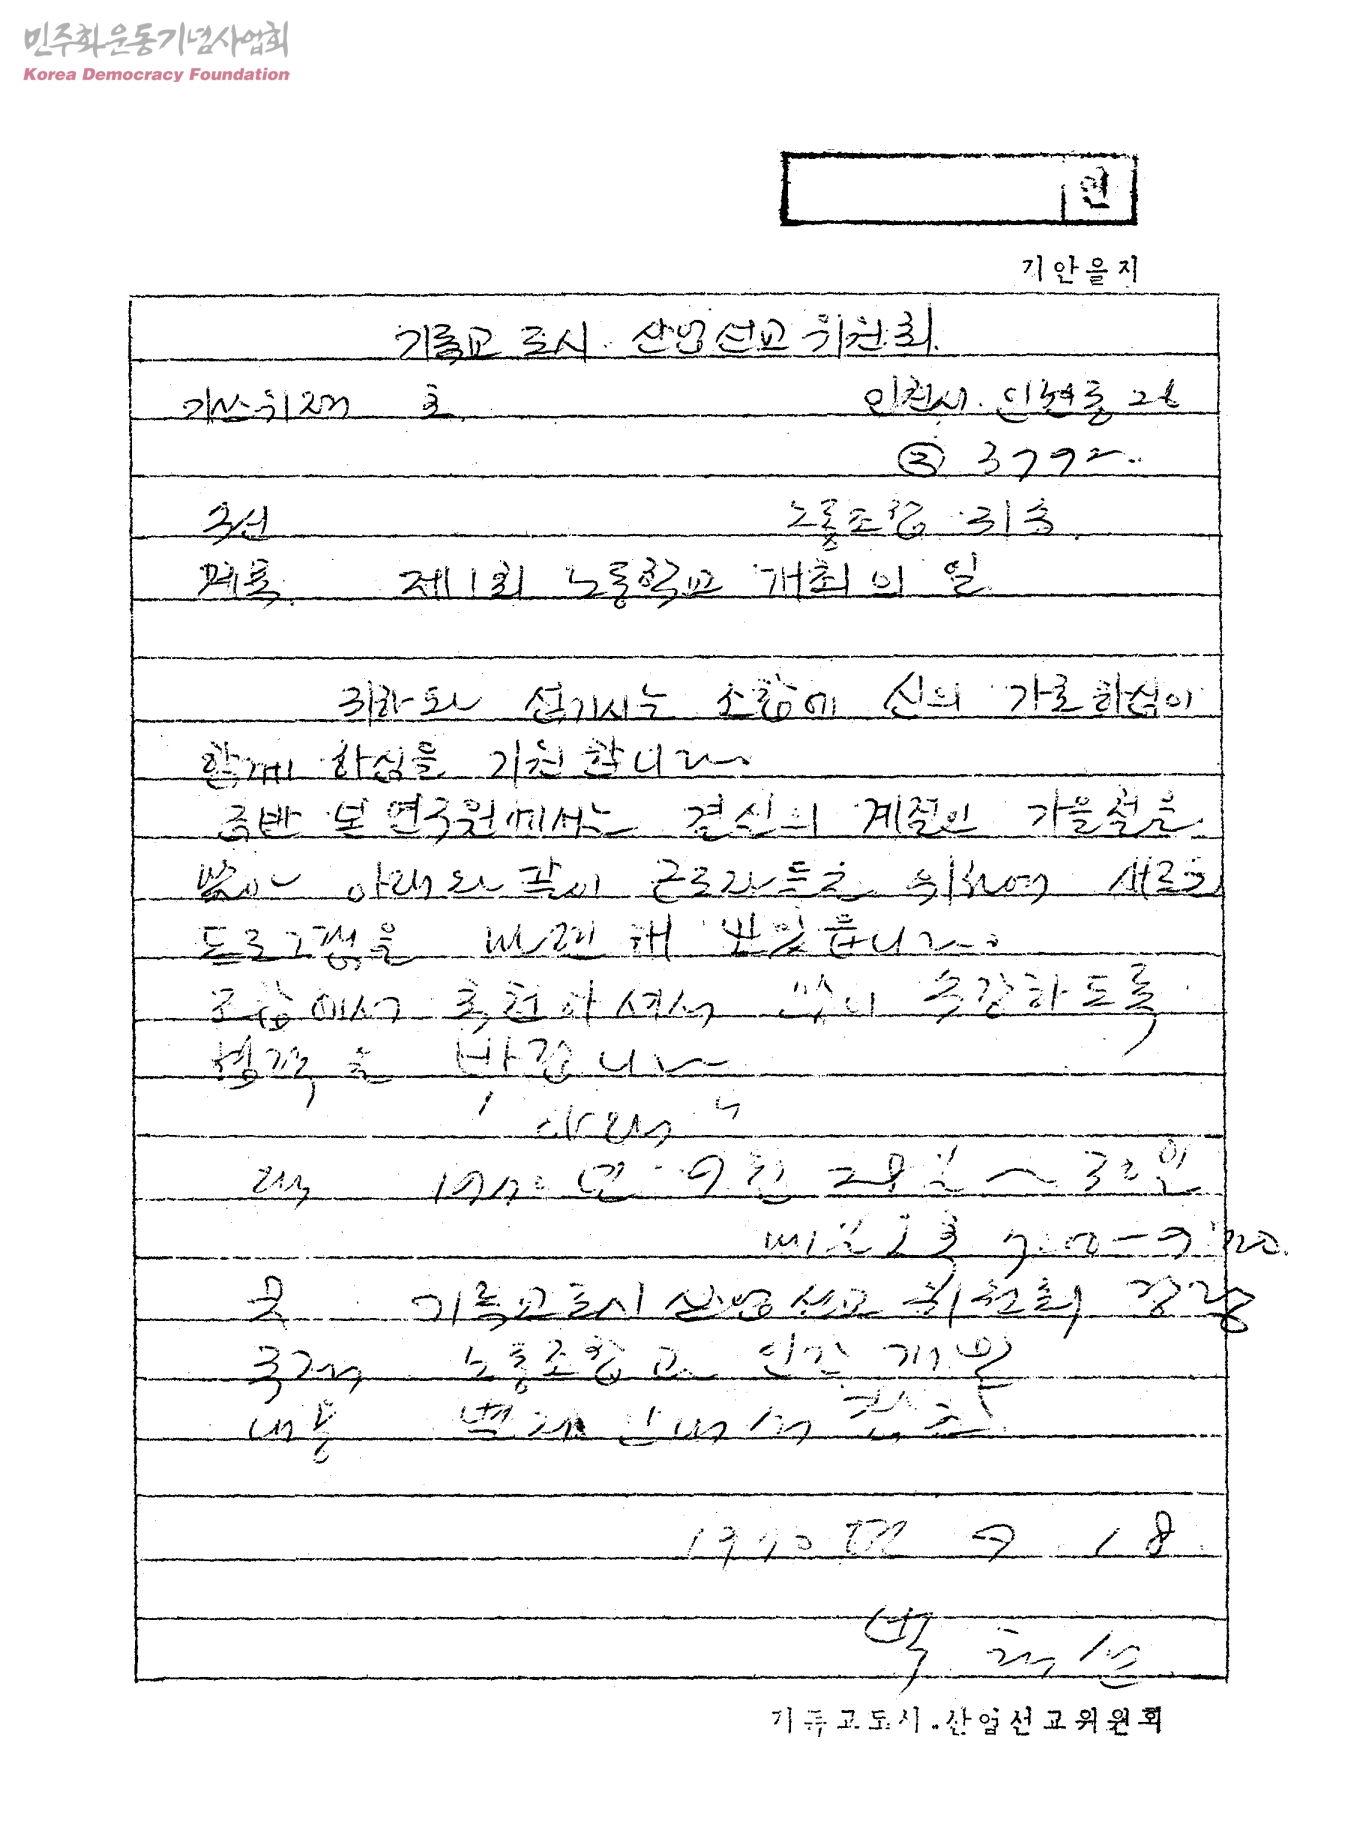 민주화운동기념사업회
Korea Democracy Foundation
연
기안을지
기독교 도시·산업선교위원회
기산위 제 호 인천시·인현동 26
3792
수신 노동조합 귀중
제목 제1회 노동학교 개최의 일
귀하와 섬기시는 조합에 신의 가호하심이
함께 하심을 기원합니다.
금반 본 연구원에서는 결실의 계절인 가을철을
맞아 아래와 같이 근로자들을 위하여 새로운
프로그램을 마련해 보았습니다.
조합에서 추천하셔서 많이 수강하도록
협력을 바랍니다
"아래"
때 1970년 9월 28일 ~ 30일
매일 오후 7:00-9:20.
곳 기독교도시산업선교위원회 강당
주제 노동조합과 인간개발
내용
1970년 9. 18.
기독교도시·산업선교위원회